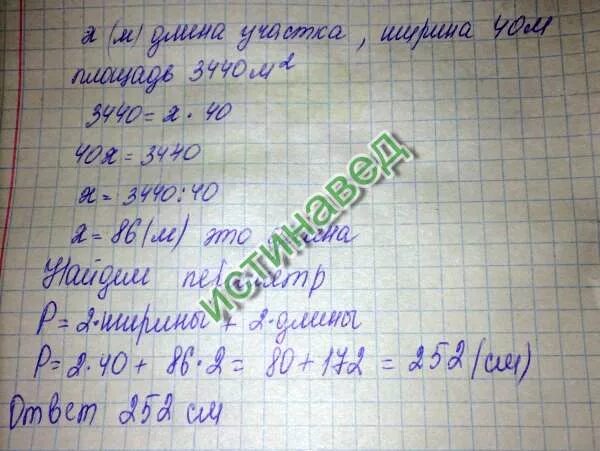 x (м) длина участка, ширина 40м
площадь 3440м²
3440 = x · 40
40x = 3440
x = 3440:40
x = 86 (м) это длина
Найдем периметр
P = 2·ширины + 2·длины
P = 2·40 + 86·2 = 80 + 172 = 252 (см)
Ответ 252 см
истинавед